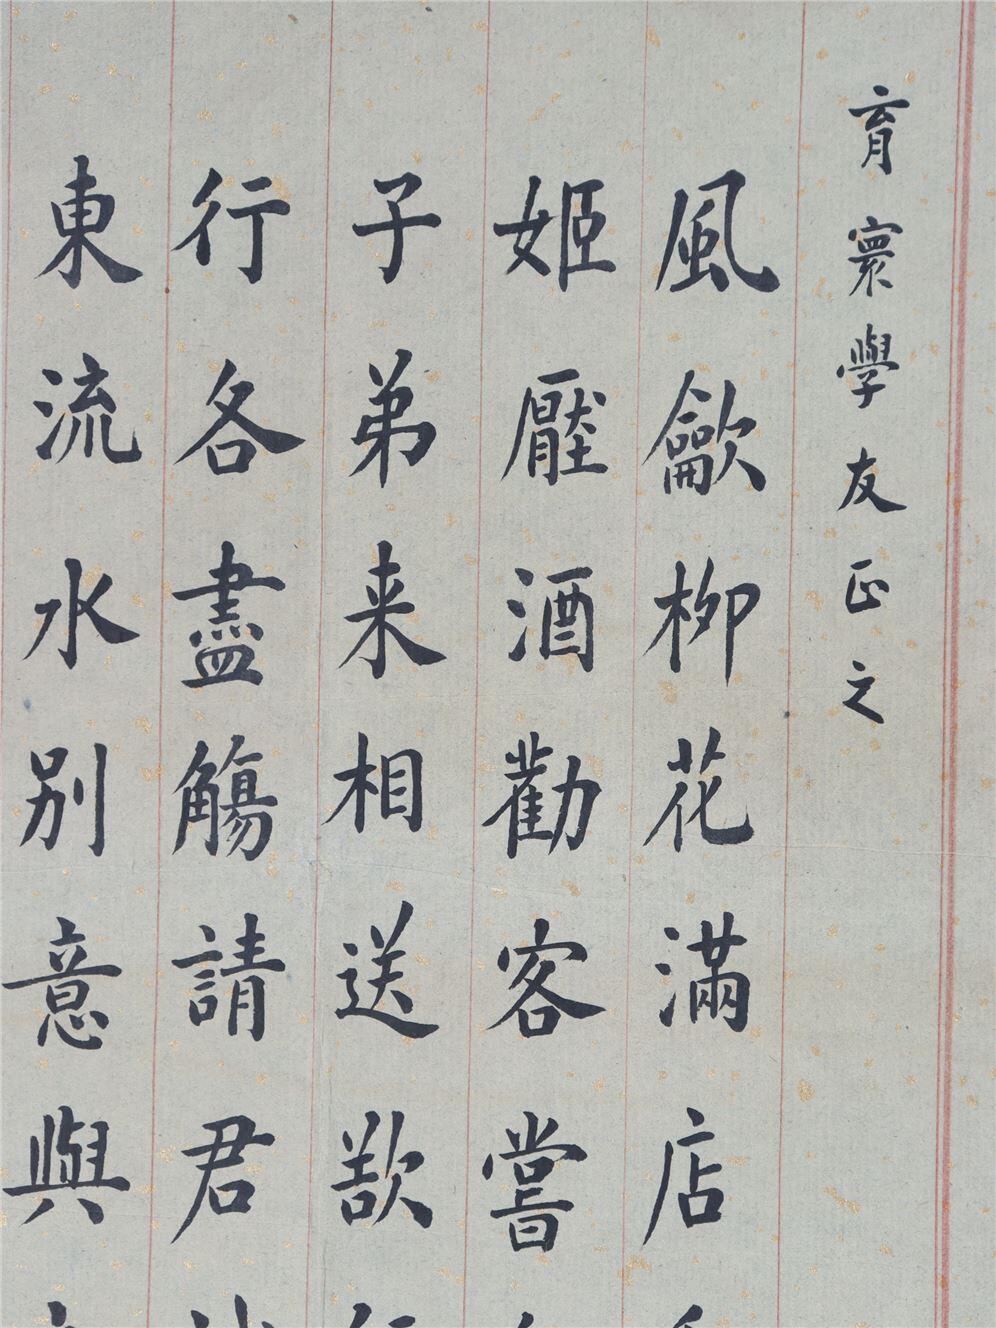 育寰學友正之
風歈柳花滿店
姬壓酒勸客嘗
子弟来相送欲
行各盡觴請君
東流水别意與